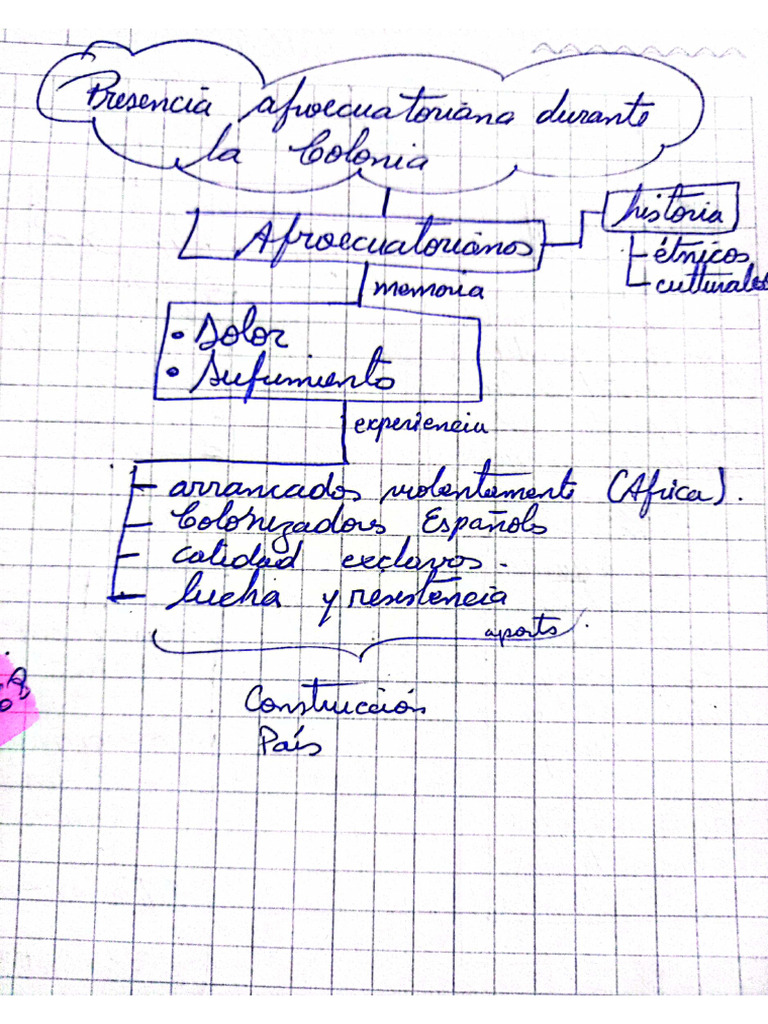 Presencia afroecuatoriana durante
la Colonia
Afroecuatorianos
historia
étnicos
culturales
memoria
• Dolor
• Sufrimiento
experiencia
- arrancados violentamente (Africa).
- Colonizadores Españols
- calidad exclavos.
- lucha y resistencia
aports
Construcción
País